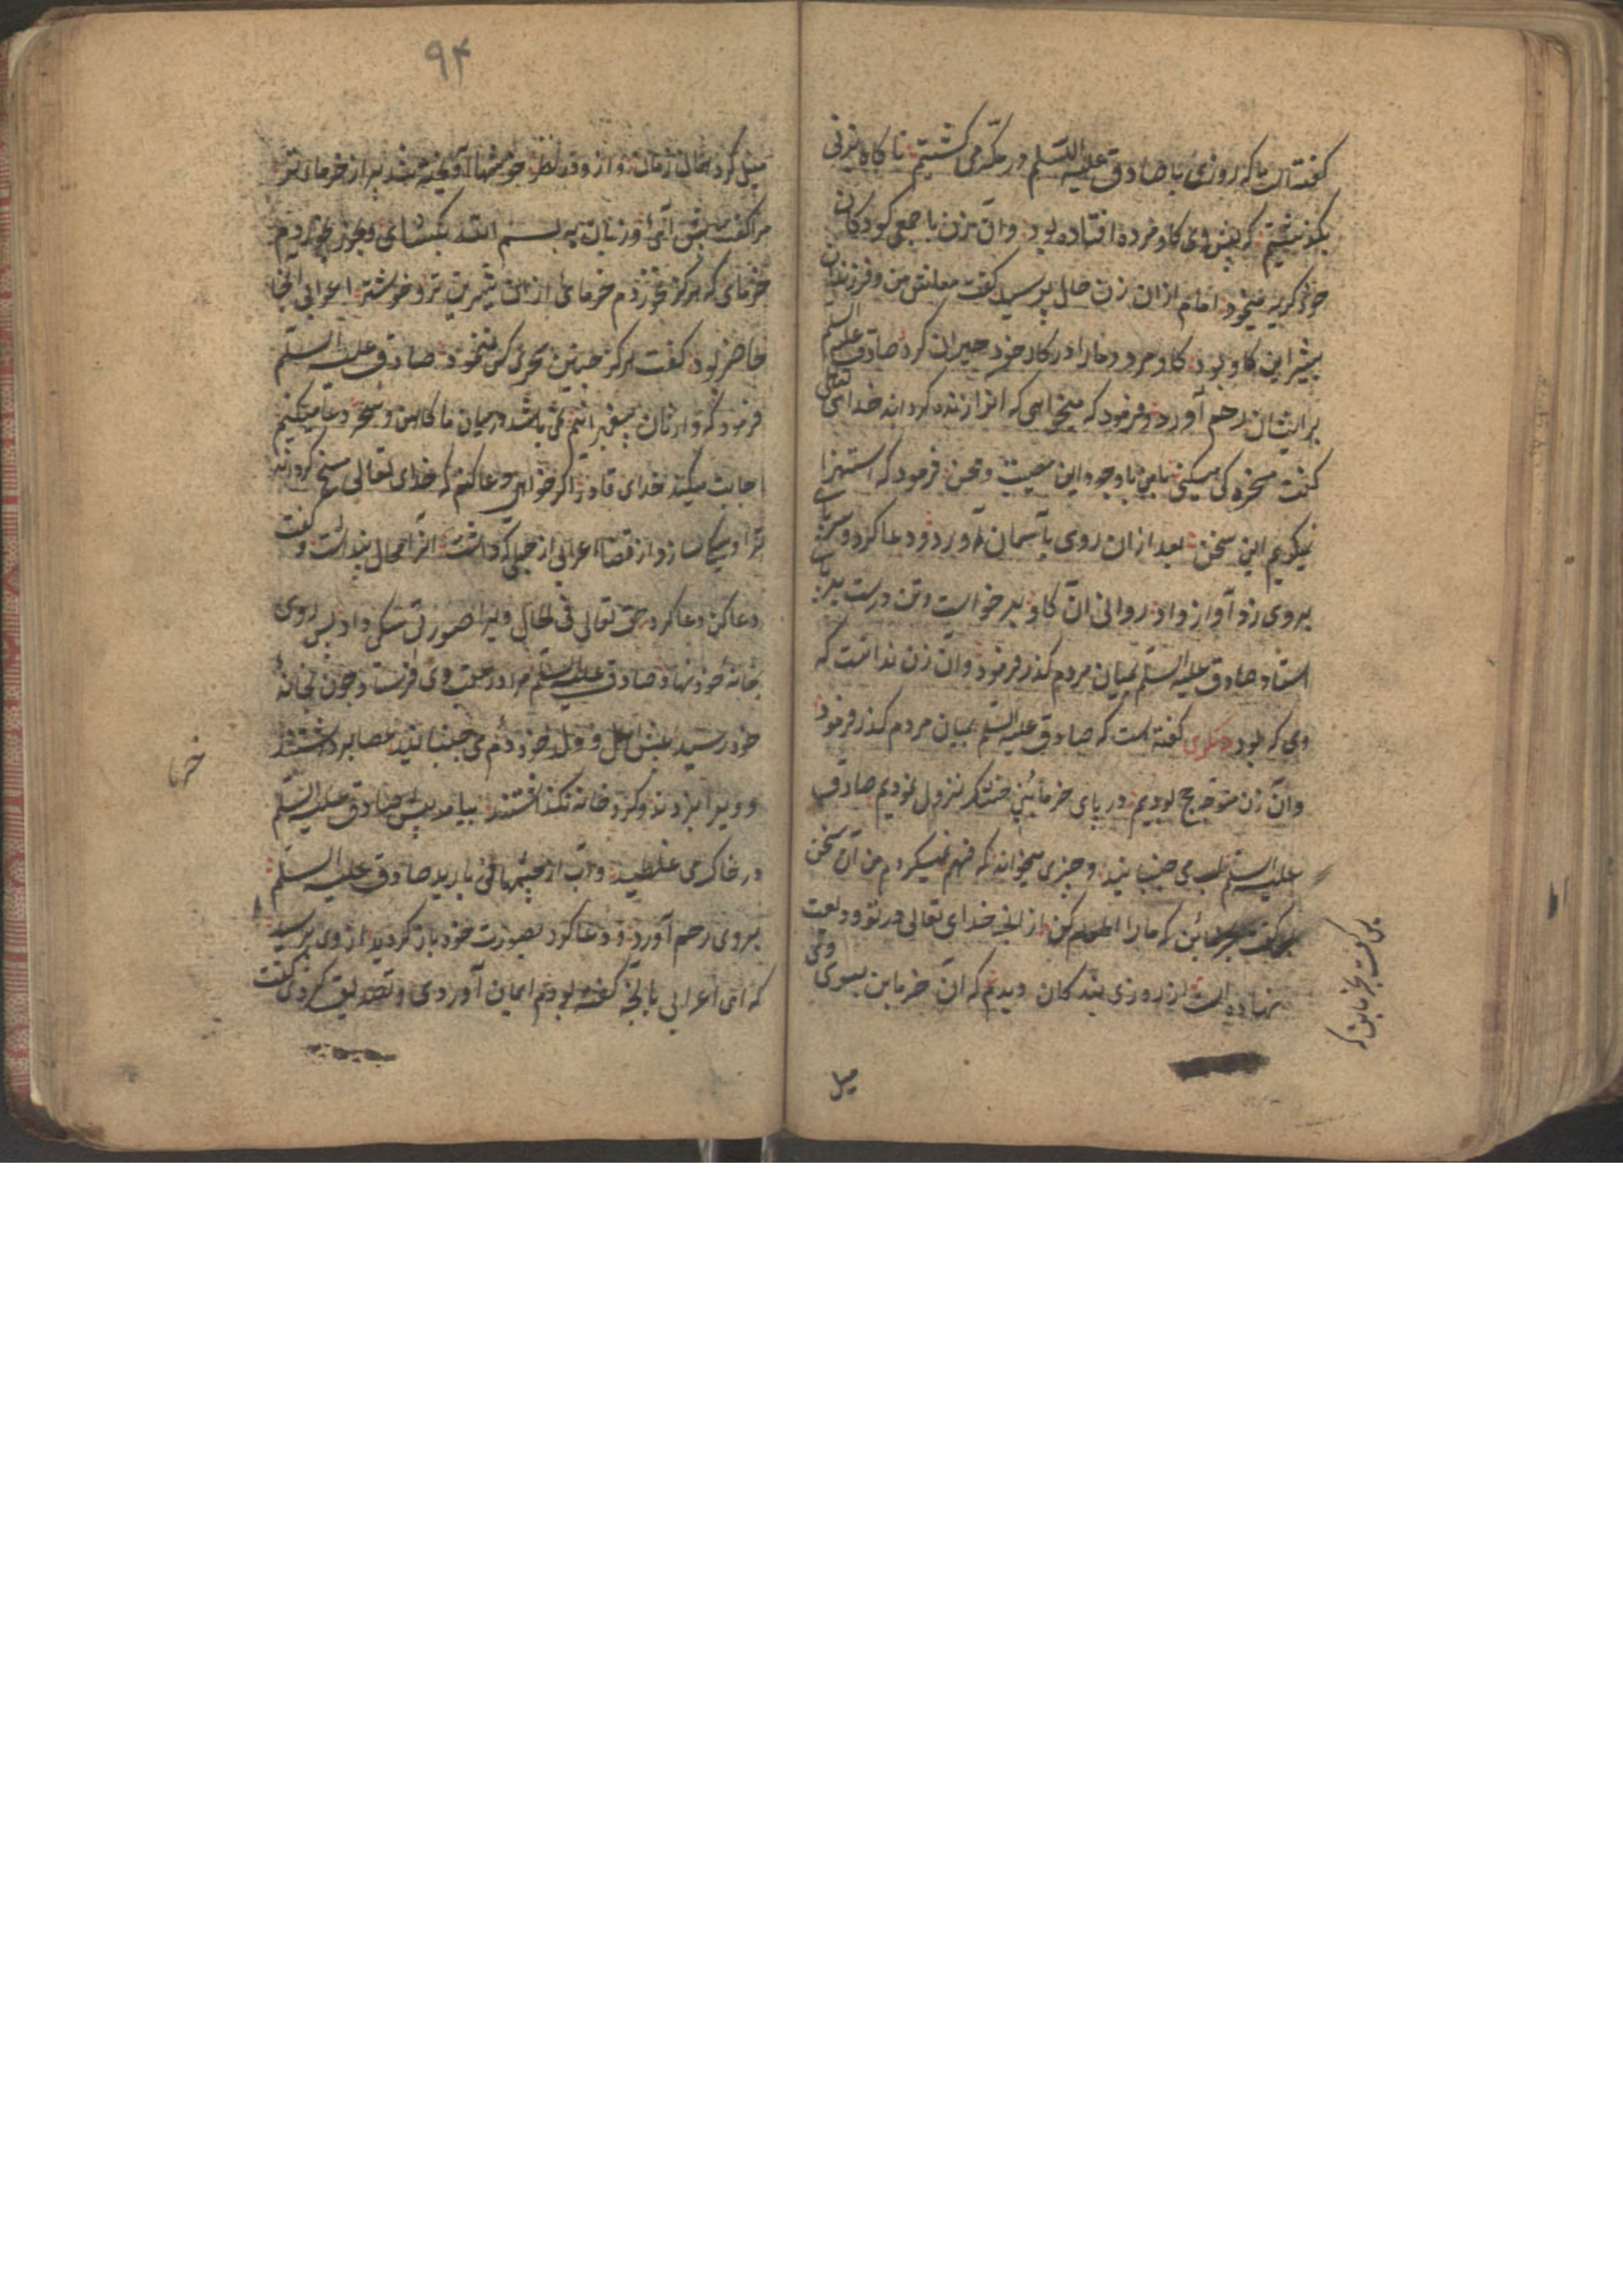 گفته است که روزی با صادق علیه السلم در مکه می گشتیم ناگاه بزنی
بگذشتیم که پیش وی گاو مرده افتاده بود وآن زن با جمعی کودکان
خود گریه میخورد امام از ان زن حال پرسید گفت معاش من و فرزندان
بیشر این گاو بود گاو مرد و مارا در کار خود حیران کرد صادق علیه السلم
بر ایشان رحم آورد و فرمود که میخواهی که انرا زنده گرداند خدای تعالی
گفت مسخره کی میکنی بامن با وجود این مصیبت و محن فرمود که استهزا
نمیکویم این سخن بعد ازان روی بآسمان آورد و دعا کرد و سر پای
بروی زد آواز داد روانی ان گاو بر خواست و تن درست بر پای
استاد صادق علیه السلم بمیان مردم گذر فرمود وآن زن ندانست که
وی که بود دیگری گفته است که صادق علیه السلم بمیان مردم گذر فرمود
وآن زن متوجه حج بودیم در پای خرمابنی خشک نزول نمودیم صادق
علیه السلم لب می جنبانید و چیزی میخواند که فهم نمیکردم من آن سخن
که مارا اطعام کن از انچه خدای تعالی در تو ودیعت
نهاده است از روزی بندکان دیدم که آن خرمابن بسوی وی
پس گفت بخرمابن که
میل
۹۴
میل کرد همان زمان و از وی در نظر خوشها آویخته شد پر از خرمای تر
مرا گفت پیش آی و زبان به بسم الله بکشای و بخور بخوردم
خرمای که هرگز نخوردم خرمای از ان شیرین تر و خوشتر اعرابی انجا
حاضر بود گفت هرگز چنین سحری کس نخورد صادق علیه السلم
فرمود که وارثان پیغمبرانیم نمی باشد در میان ما کاهن و سحر دعا میکنیم
اجابت میکند خدای قادر اگر خواهی دعا کنم که خدای تعالی مسخ گرداند
ترا و سگ سازد از قضا اعرابی از جهلی که داشت انرا محال پنداشت و گفت
دعا کن دعا کرد حق تعالی فی الحال ویرا صورت سگی داد پس روی
بخانۀ خود نهاد صادق علیه السلم مرا در عقب وی فرستاد چون بخانۀ
خود رسید پیش اهل و ولد خود دم می جنبانید عصا برداشتند
و ویرا بزدند و گرد خانه نگذاشتند بیامد پیش صادق علیه السلم
در خاک می غلطید و آب از چشمها می بارید صادق علیه السلم
بروی رحم آورد و دعا کرد بصورت خود باز گردید از وی پرسید
که ای اعرابی بانچه گفته بودم ایمان آوردی و تصدیق کردی گفت
خرما